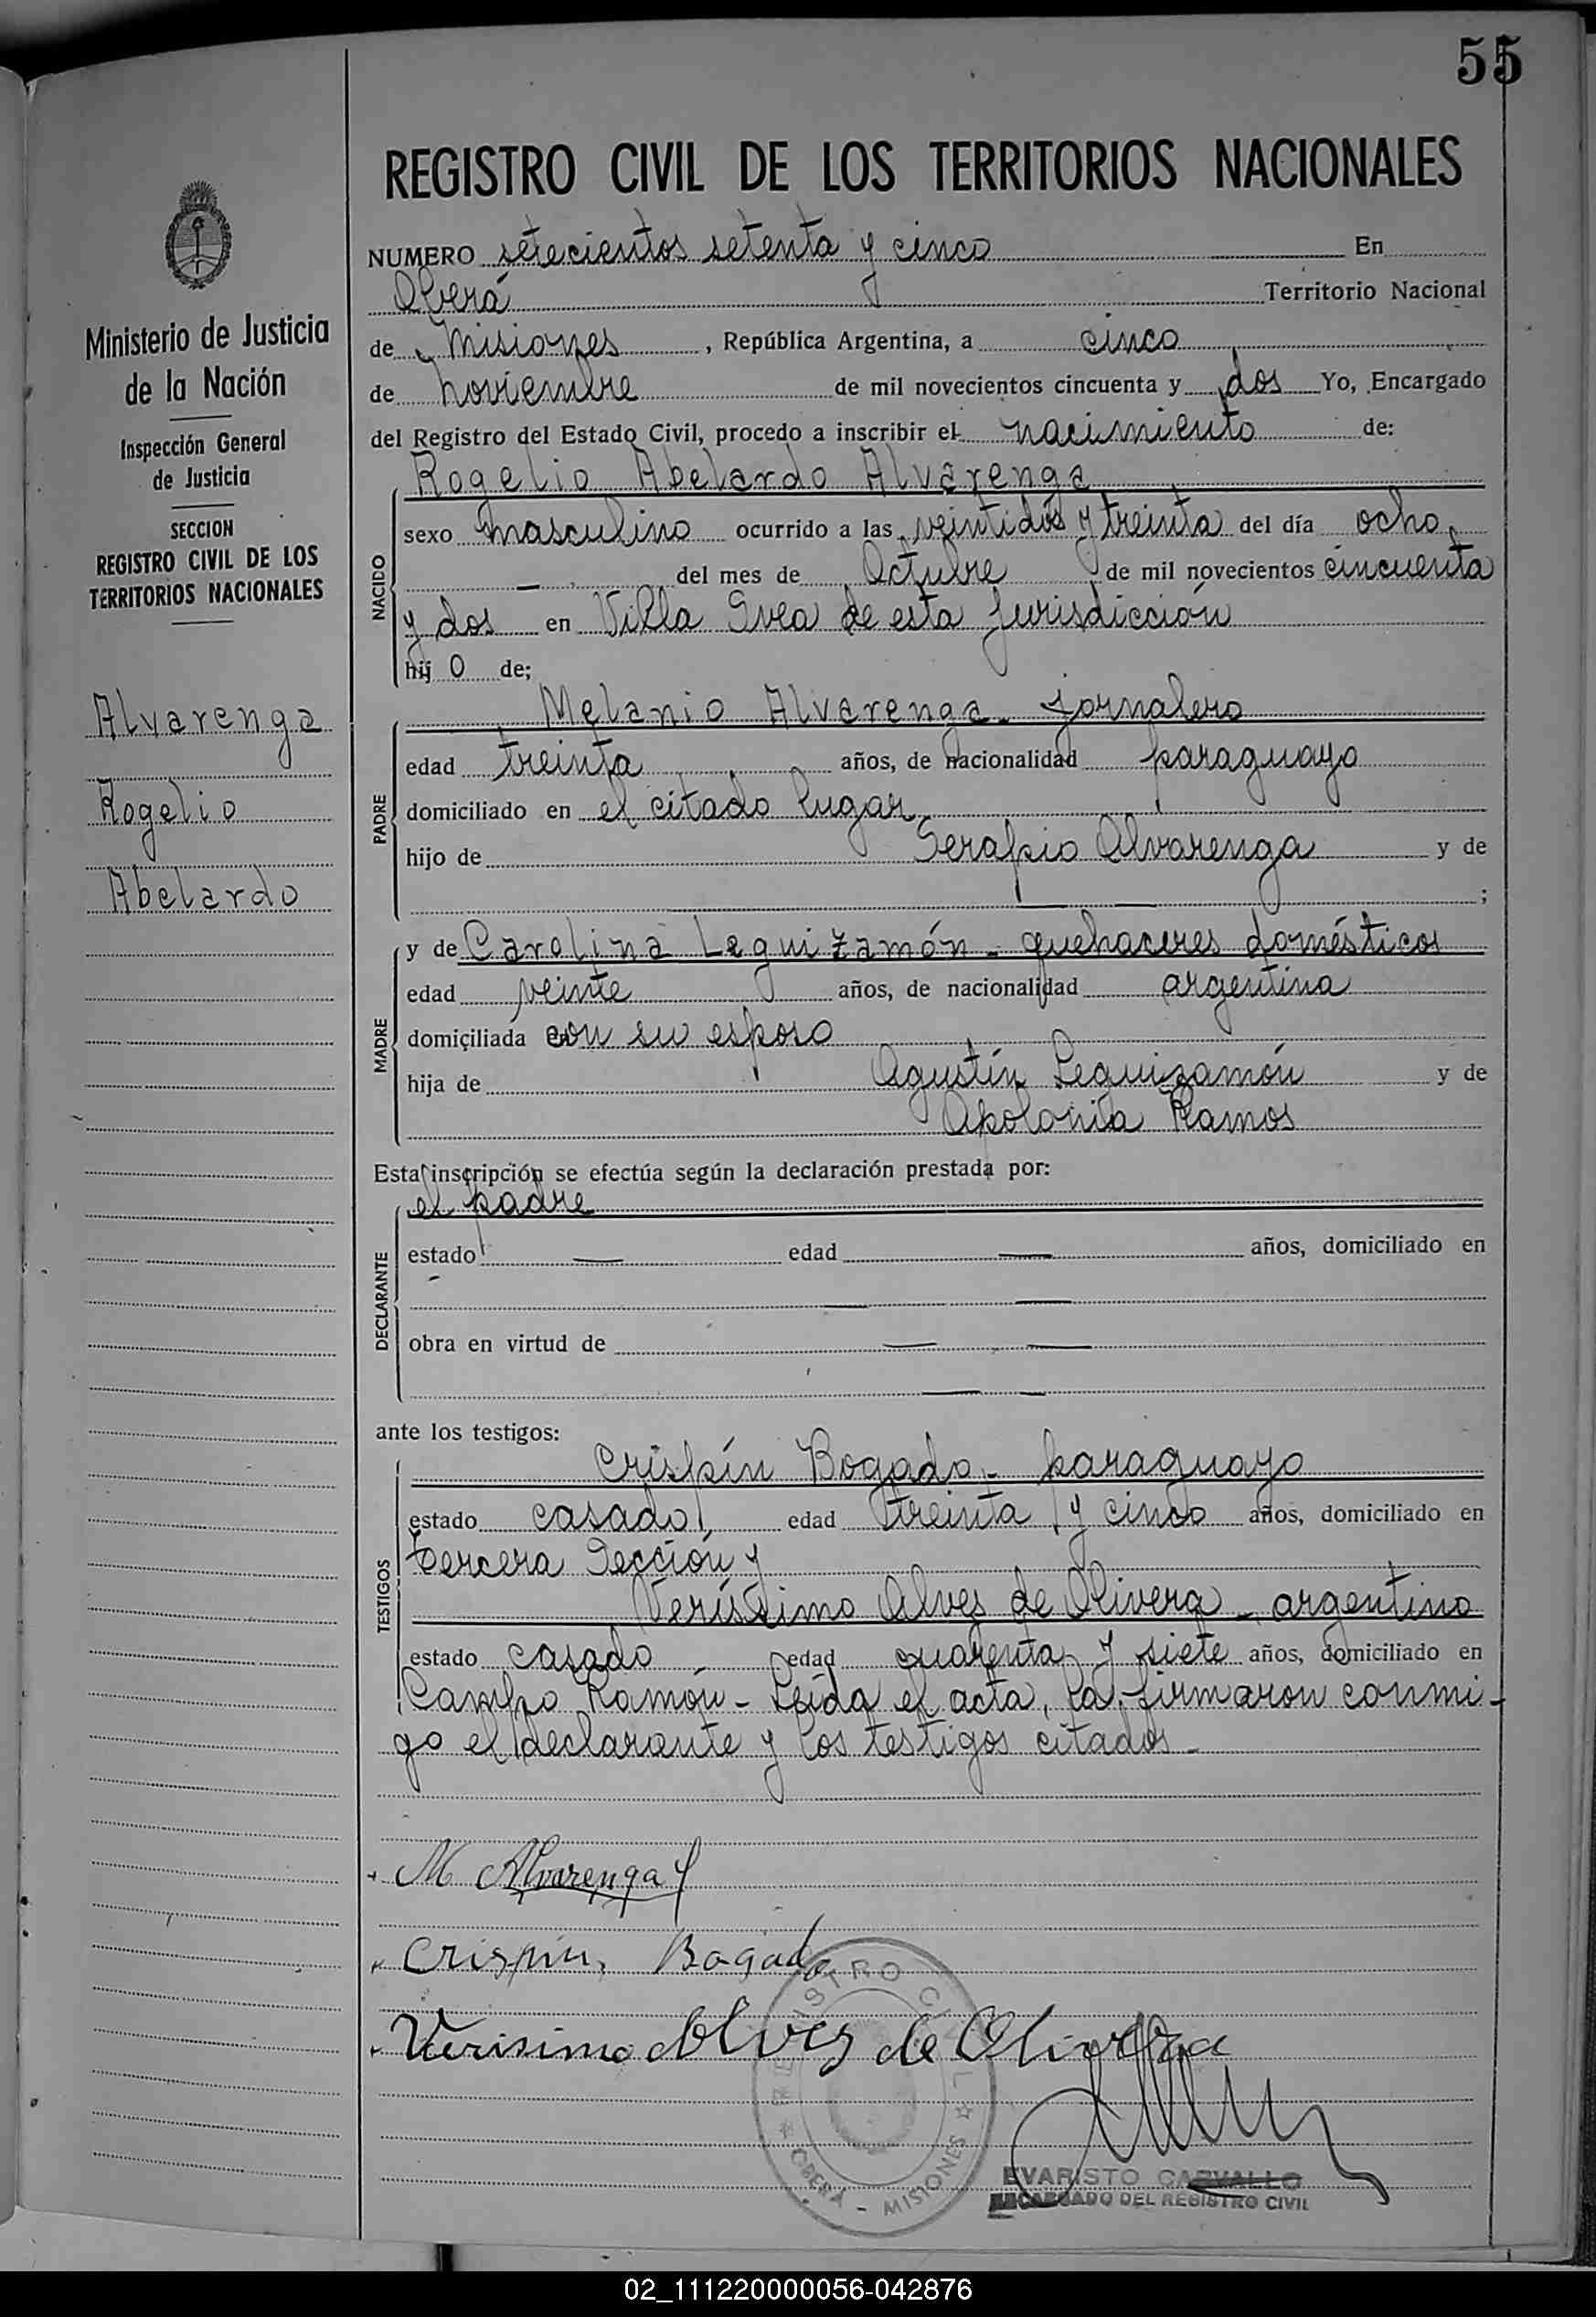 55
REGISTRO CIVIL DE LOS TERRITORIOS NACIONALES
Ministerio de Justicia
de la Nación
Inspección General
de Justicia
SECCION
REGISTRO CIVIL DE LOS
TERRITORIOS NACIONALES
Alvarenga
Rogelio
Abelardo
NUMERO setecientos setenta y cinco En
Oberá Territorio Nacional
de Misiones, República Argentina, a cinco
de noviembre de mil novecientos cincuenta y dos Yo, Encargado
del Registro del Estado Civil, procedo a inscribir el nacimiento de:
Rogelio Abelardo Alvarenga
NACIDO
sexo masculino ocurrido a las veintidós y treinta del día ocho
— del mes de Octubre de mil novecientos cincuenta
y dos en Villa Svea de esta Jurisdicción
hij o de;
Melanio Alvarenga - jornalero
PADRE
edad treinta años, de nacionalidad paraguayo
domiciliado en el citado lugar
hijo de Serapio Alvarenga y de
— — ;
y de Carolina Leguizamón - quehaceres domésticos
MADRE
edad veinte años, de nacionalidad argentina
domiciliada con su esposo
hija de Agustín Leguizamón y de
Apolonia Ramos
Esta inscripción se efectúa según la declaración prestada por:
el padre
DECLARANTE
estado — edad — años, domiciliado en
— —
obra en virtud de — —
— —
ante los testigos:
Crispín Bogado - paraguayo
TESTIGOS
estado casado, edad treinta y cinco años, domiciliado en
tercera Sección y
Veríssimo Alves de Olivera - argentino
estado casado edad cuarenta y siete años, domiciliado en
Campo Ramón - Leída el acta, la firmaron conmi-
go el declarante y los testigos citados -
M Alvarenga
Crispin, Bogado
Verisimo Alves de Olivera
REGISTRO CIVIL
OBERÁ - MISIONES
EVARISTO CARVALLO
ENCARGADO DEL REGISTRO CIVIL
02_111220000056-042876